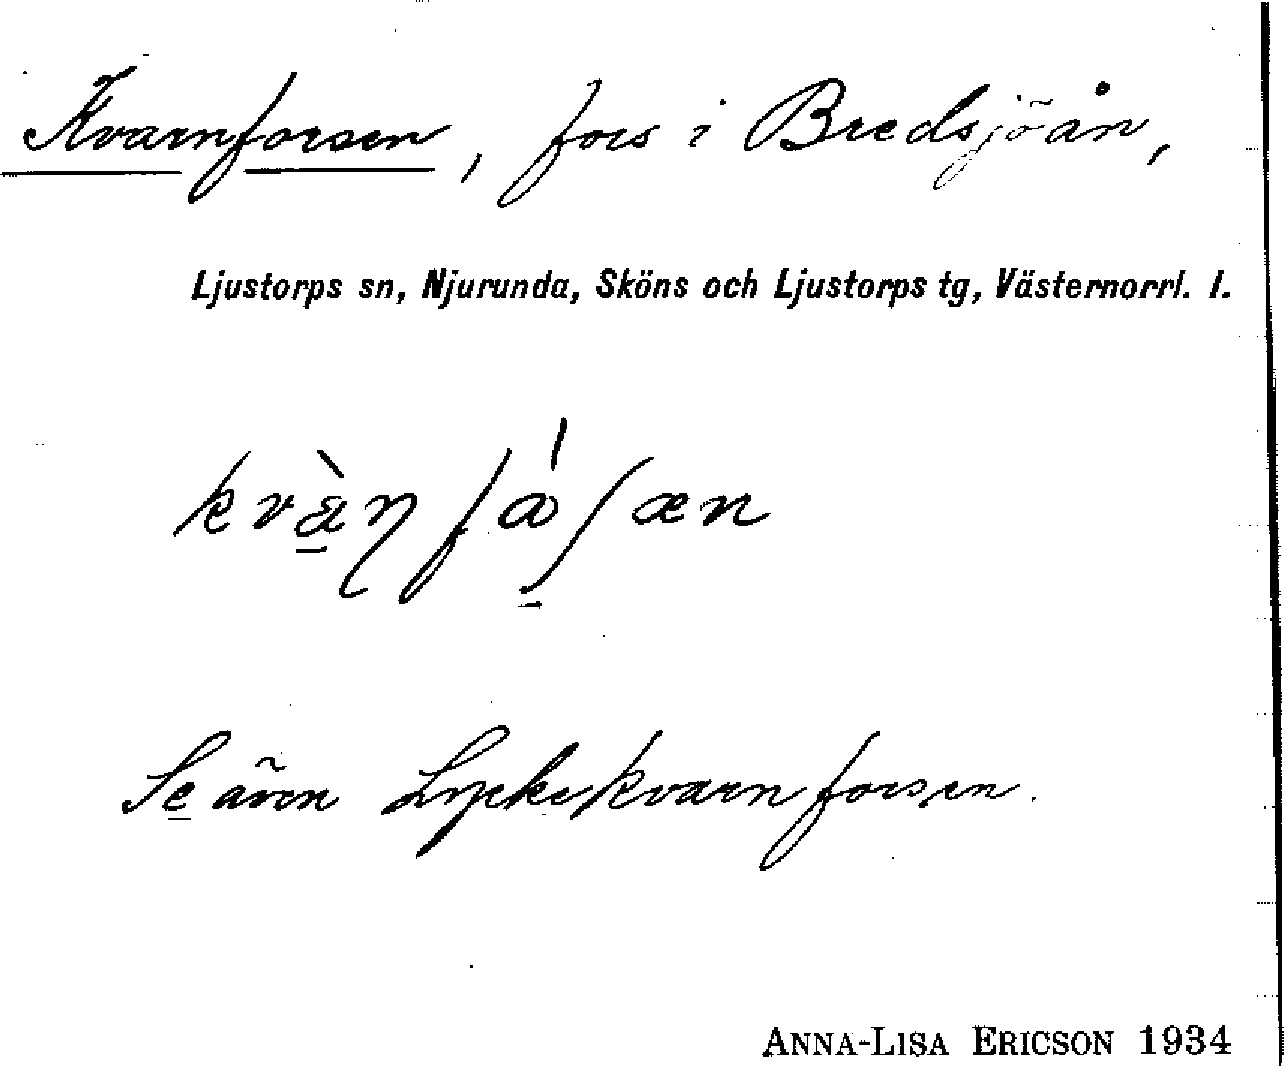 Kvarnforsen, fors i Bredsjöån,
Ljustorps sn, Njurunda, Sköns och Ljustorps tg, Västernorrl. l.
Se även Lyckekvarnforsen.
ANNA-LISA ERICSON 1934